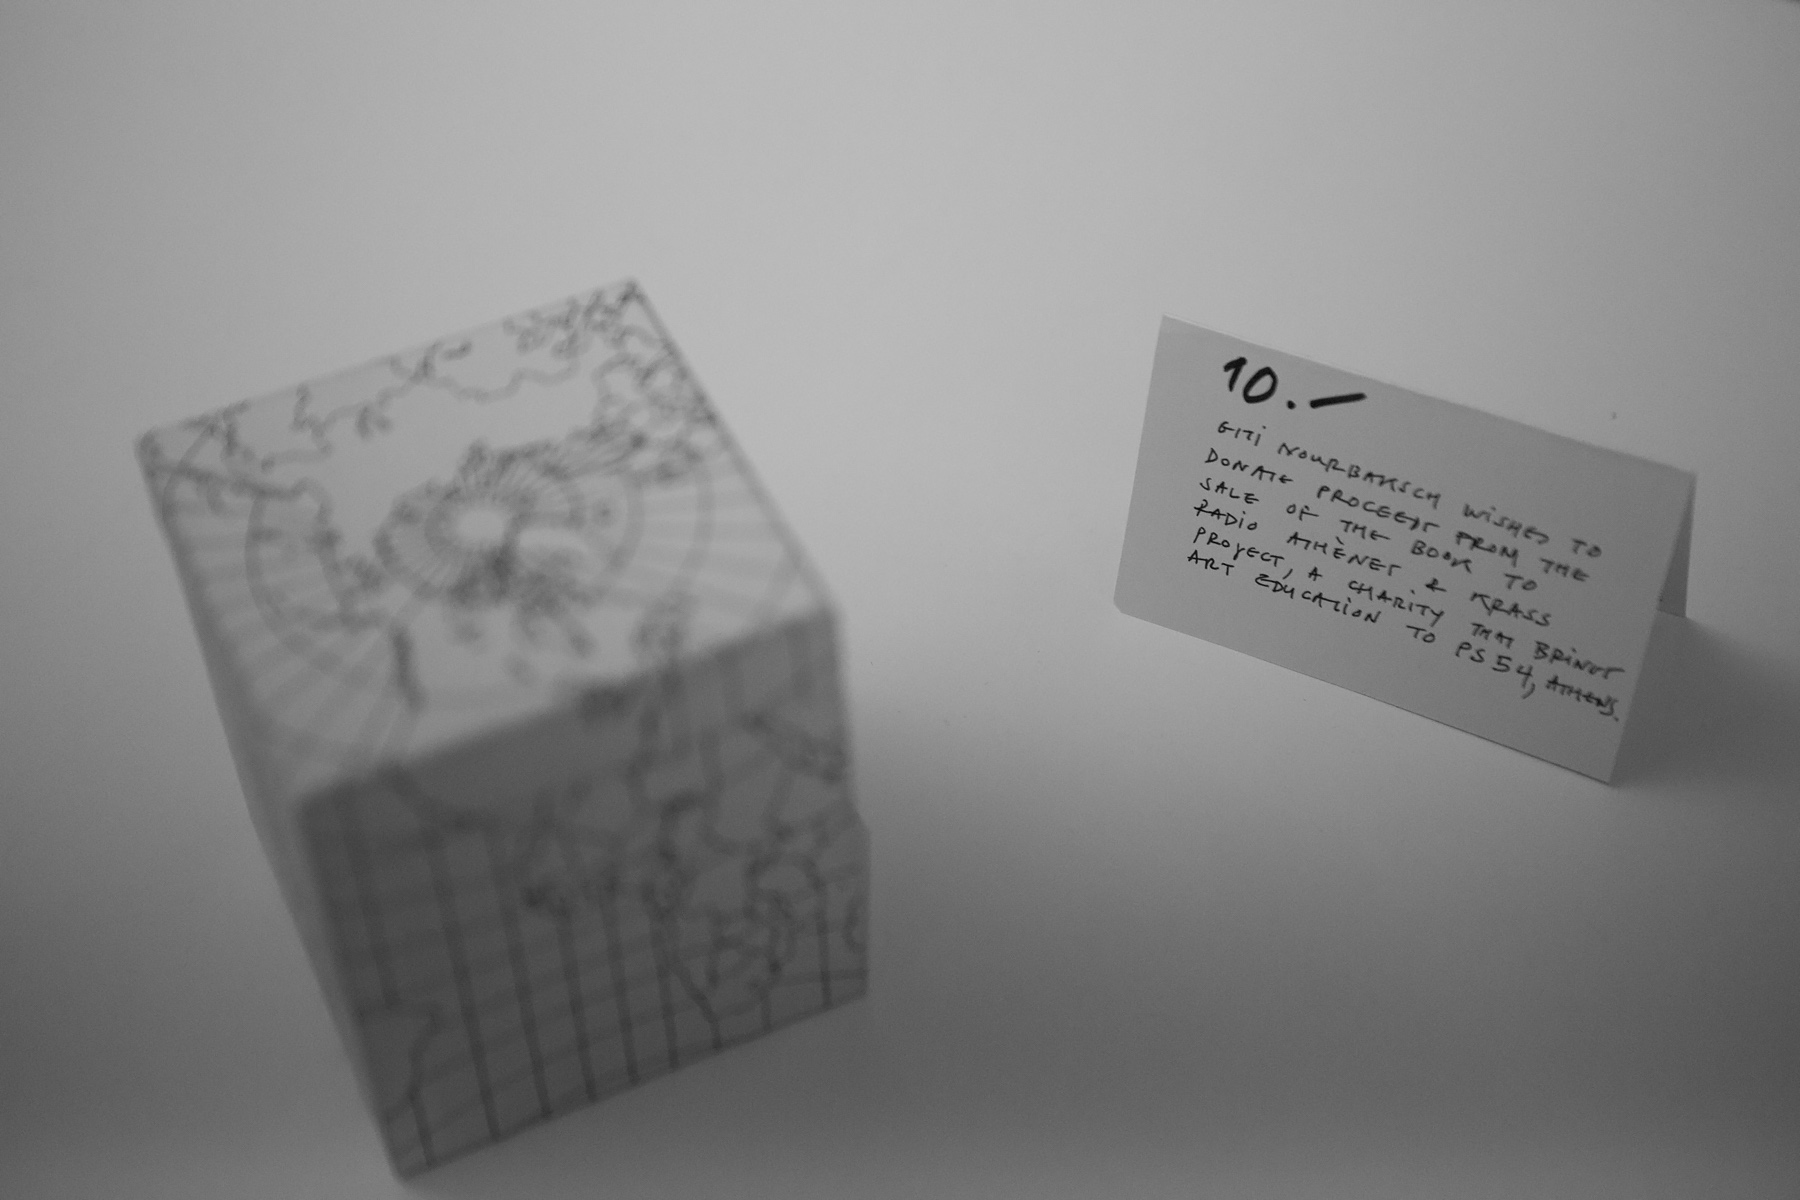 10.–
GITI NOURBAKSCH WISHES TO
DONATE PROCEEDS FROM THE
SALE OF THE BOOK TO
RADIO ATHÈNES & KRASS
PROJECT, A CHARITY THAT BRINGS
ART EDUCATION TO PS54, ATHENS.